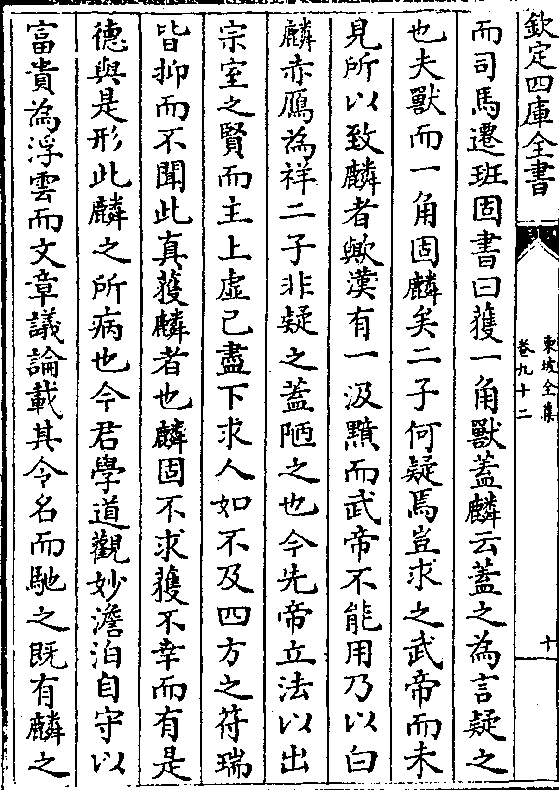 欽定四庫全書
東坡全集
卷九十二
十
而司馬遷班固書曰獲一角獸蓋麟云蓋之為言疑之
也夫獸而一角固麟矣二子何疑焉豈求之武帝而未
見所以致麟者歟漢有一汲黯而武帝不能用乃以白
麟赤鴈為祥二子非疑之蓋陋之也今先帝立法以出
宗室之賢而主上虛己盡下求人如不及四方之符瑞
皆抑而不聞此真獲麟者也麟固不求獲不幸而有是
德與是形此麟之所病也今君學道觀妙澹泊自守以
富貴為浮雲而文章議論載其令名而馳之既有麟之